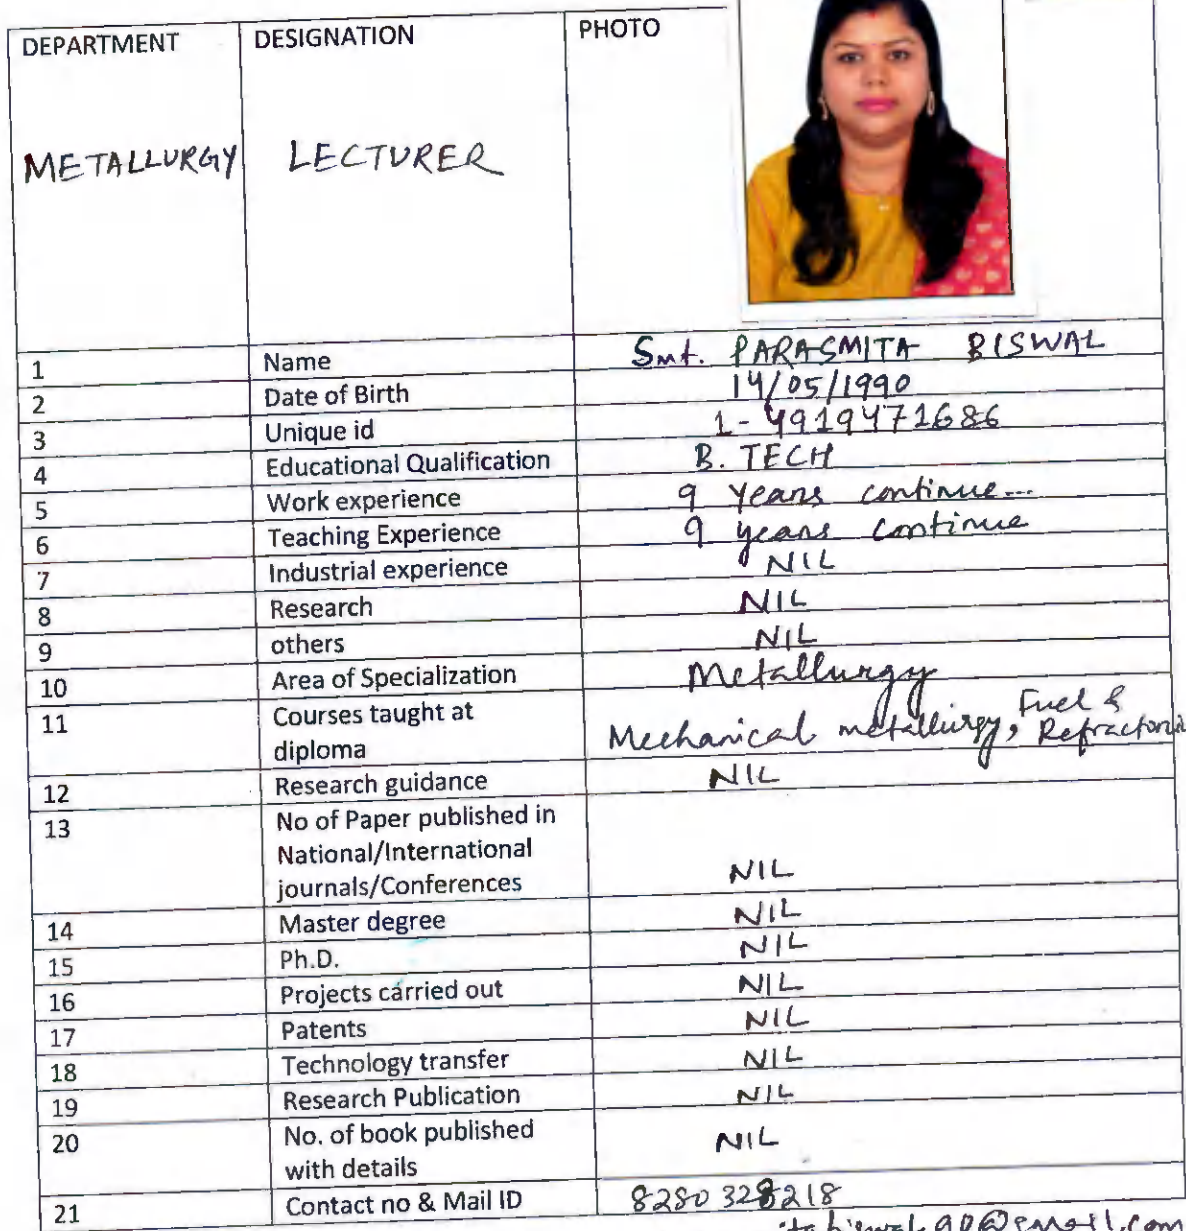 DEPARTMENT DESIGNATION PHOTO
METALLURGY LECTURER
1 Name Smt. PARASMITA BISWAL
2 Date of Birth 14/05/1990
3 Unique id 1-4919471686
4 Educational Qualification B. TECH
5 Work experience 9 Years continue...
6 Teaching Experience 9 years continue
7 Industrial experience NIL
8 Research NIL
9 others NIL
10 Area of Specialization Metallurgy
11 Courses taught at Fuel &
diploma Mechanical metallurgy, Refractories
12 Research guidance NIL
13 No of Paper published in
National/International
journals/Conferences NIL
14 Master degree NIL
15 Ph.D. NIL
16 Projects carried out NIL
17 Patents NIL
18 Technology transfer NIL
19 Research Publication NIL
20 No. of book published NIL
with details
21 Contact no & Mail ID 8280328218